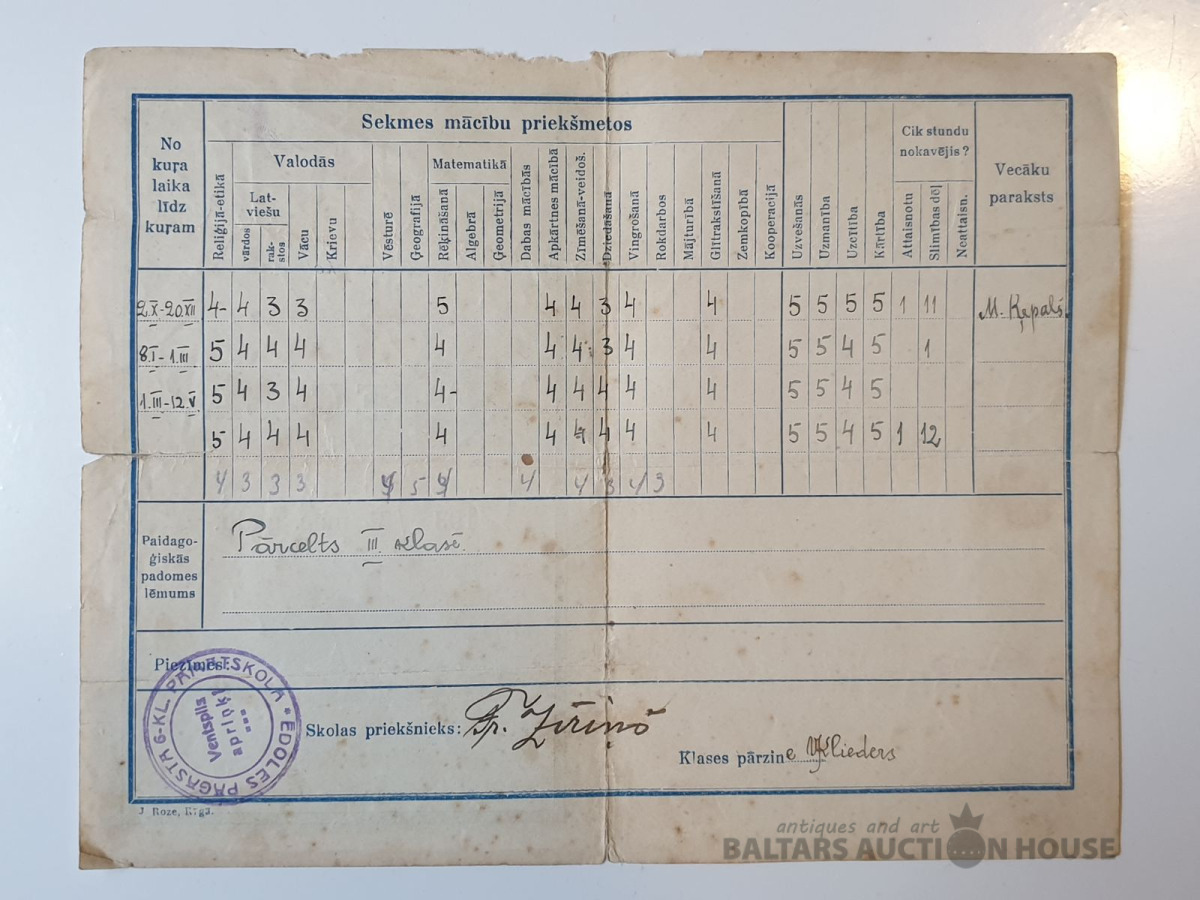 Sekmes mācību priekšmetos
No kuŗa laika līdz kuŗam
Rēliģijā-ētikā
Valodās
Latviešu
vārdos
rakstos
Vācu
Krievu
Vēsturē
Ģeografijā
Matematikā
Rēķināšanā
Algebrā
Ģeometrijā
Dabas mācībās
Apkārtnes mācībā
Zīmēšanā-veidoš.
Dziedāšanā
Vingrošanā
Rokdarbos
Mājturībā
Glītrakstīšanā
Zemkopībā
Kooperacijā
Uzvešanās
Uzmanība
Uzcītība
Kārtība
Cik stundu nokavējis?
Attaisnotu
Slimības dēļ
Neattaisn.
Vecāku paraksts
2.X-20.XII 4- 4 3 3 5 4 4 3 4 4 5 5 5 5 1 11 M. Ķepals.
8.I-1.III 5 4 4 4 4 4 4 3 4 4 5 5 4 5 1
1.III-12.V 5 4 3 4 4- 4 4 4 4 4 5 5 4 5
5 4 4 4 4 4 4 4 4 4 5 5 4 5 1 12
4 3 3 3 5 4 4 4 3
Paidagoģiskās padomes lēmums
Pārcelts III klasē.
Piezīmes:
ĒDOLES PAGASTA 6-KL. PAMATSKOLA
Ventspils apriņķī
Skolas priekšnieks: Fr. Zīriņš
Klases pārzine Klieders
J. Roze, Rīgā.
antiques and art
BALTARS AUCTION HOUSE